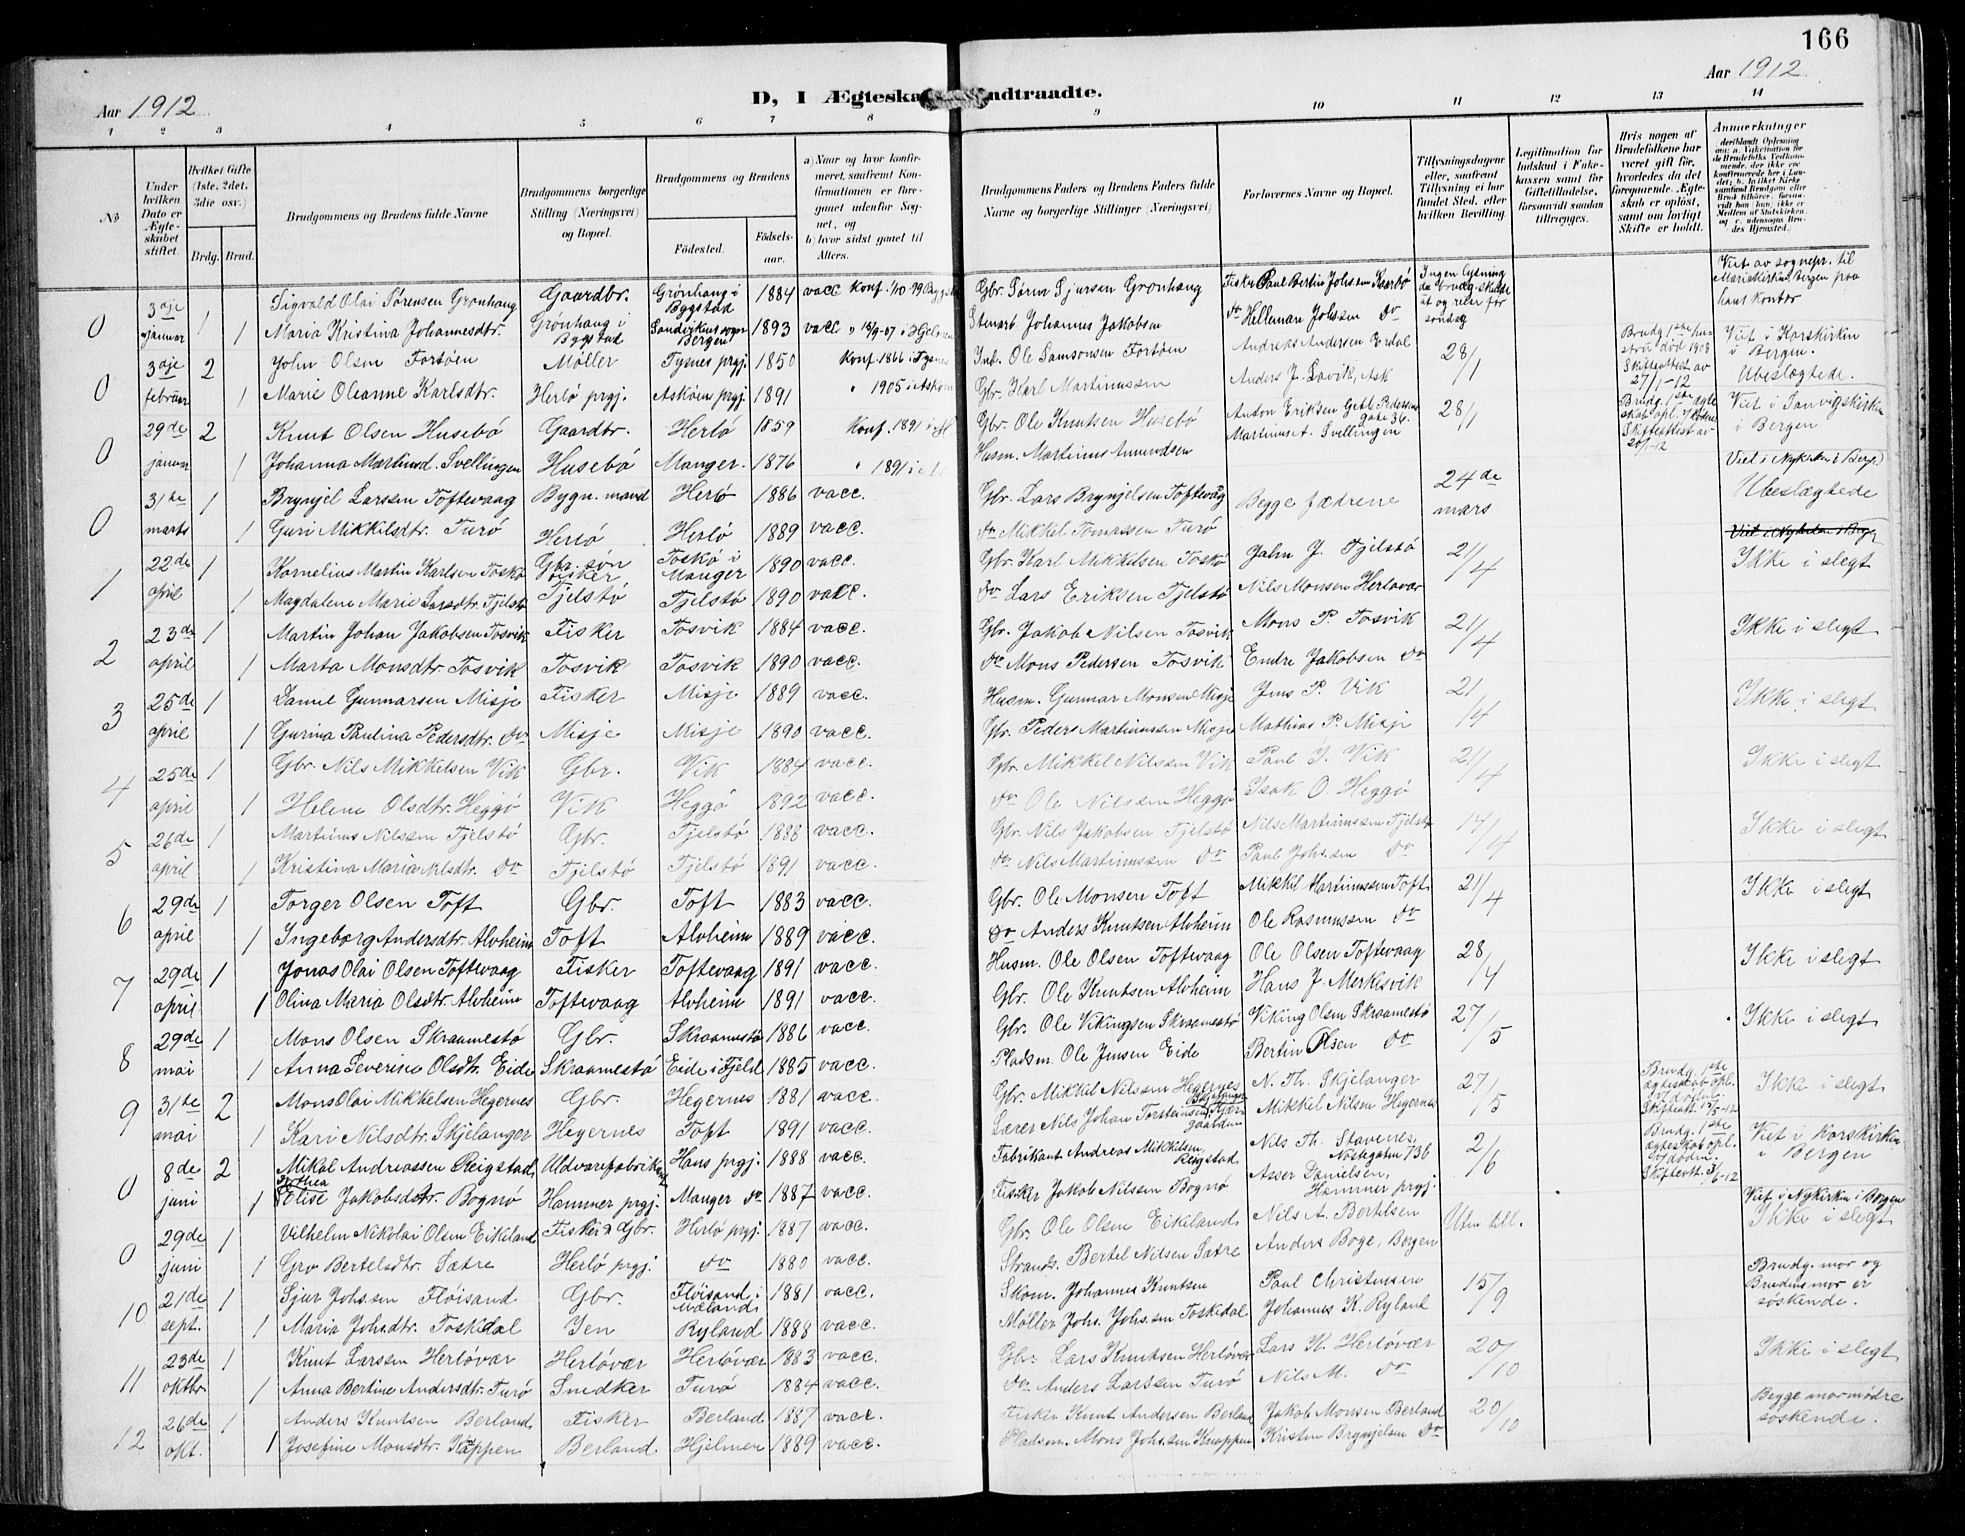 166
Aar 1912
D, I Ægteska ndtraadte.
Aar 1912
1 2 3 4 5 6 7 8 9 10 11 12 13 14
No
Under hvilken Dato er Ægteskabet stiftet.
Hvilket Gifte (1ste, 2det, 3die osv.)
Brdg. Brud.
Brudgommens og Brudens fulde Navne
Brudgommens borgerlige Stilling (Næringsvei) og Bopæl.
Brudgommens og Brudens
Fødested. Fødselsaar.
a) Naar og hvor konfirmeret, saafremt Konfirmationen er foregaaet udenfor Sognet, og
b) hvor sidst gaaet til Alters.
Brudgommens Faders og Brudens Faders fulde Navne og borgerlige Stillinger (Næringsvei)
Forlovernes Navne og Bopæl.
Tillysningsdagene eller, saafremt Tillysning ei har fundet Sted, efter hvilken Bevilling.
Legitimation for Indskud i Enkekassen samt for Giftetilladelse, forsaavidt saadan tiltrænges.
Hvis nogen af Brudefolkene har været gift før, hvorledes da det foregaaende Ægteskab er opløst, samt om lovligt Skifte er holdt.
Anmerkninger
0 3dje januar 1 Sigvald Olai Sørensen Grønhaug Gaardbr. Grønhaug i Bygstad 1884 vacc Konf. 1/10 99 Bygst Gbr. Søren Sjursen Grønhaug Fisker Paul Bertin Johs.sen Kaarbø Ingen lysning da brudg. skulde ut og reise før søndag Viet av sognepr. til Mariakirken, Bergen paa hans kontor
1 Maria Kristina Johannesdtr. Grønhaug i Bygstad Sandvikens sogn Bergen 1893 vacc " 15/9-07 i Hjelmen Stenarb. Johannes Jakobsen do Helleman Johssen do
0 3dje februar 2 John Olsen Fortøen Møller Tysnes prgj. 1850 Konf. 1866 i Tysnes Ind. Ole Samsonsen Fortøen Andreas Andersen Erdal 28/1 Brudg. 1ste hustru død 1908 Skifteattest av 27/1-12 Viet i Korskirken i Bergen. Ubeslægtede.
1 Marie Oleanne Karlsdtr. Herlø prgj. Askøens prgj. 1891 " 1905 i Askøen Gbr. Karl Martinussen Anders J. Lavik, Ask
0 29de januar 2 Knut Olsen Husebø Gaardbr. Herlø 1859 Konf. 1891 i Gbr. Ole Knutsen Husebø Anton Eriksen Gebl. Pedersens gate 36. 28/1 Brudg. 1ste ægteskap opl. v/ døden Skifteattest av 20/1-12 Viet i Sanvigskirken i Bergen
1 Johanna Martinusd. Svellingen Husebø Manger. 1876 " 1891 i Husm. Martinus Amundsen Martinus A. Svellingen
0 31te marts 1 Brynjel Larssen Toftevaag Bygn. mand Herlø 1886 vacc. Gbr. Lars Brynjelsen Toftevåg Begge fædrene 24de mars Viet i Nykirken i Bergen Ubeslægtede
1 Guri Mikkelsdtr. Turø Herlø Herlø 1889 vacc. do Mikkel Tomassen Turø
1 22de april 1 Kornelius Martin Karlsen Toskø Gbr. søn fisker Toskø i Manger 1890 vacc. Gbr. Karl Mikkelsen Toskø John J. Tjelstø 21/4 Viet i Nykirken i Bergen Ikke i slegt
1 Magdalene Marie Larsdtr. Tjelstø Tjelstø Tjelstø 1890 vacc. do Lars Eriksen Tjelstø Nils Monsen Herløvær
2 23de april 1 Martin Johan Jakobsen Tosvik Fisker Tosvik 1884 vacc. Gbr. Jakob Nilsen Tosvik Mons P. Tosvik 21/4 Ikke i slegt
1 Marta Monsdtr. Tosvik Tosvik Tosvik 1890 vacc. do Mons Pedersen Tosvik Endre Jakobsen do
3 25de april 1 Daniel Gunnarsen Misje Fisker Misje 1889 vacc. Husm. Gunnar Monsen Misje Jens P. Vik 21/4 Ikke i slegt
1 Gurina Paulina Pedersdtr. do Misje Misje 1890 vacc. Gbr. Peders Martinussen Misje Mathias P. Misje
4 25de april 1 Gbr. Nils Mikkelsen Vik Gbr. Vik 1884 vacc. Gbr Mikkel Nilssen Vik Paul J. Vik 21/4 Ikke i slegt
1 Helene Olsdtr. Heggø Vik Heggø 1892 vacc. do Ole Nilssen Heggø Isak O. Heggø
5 26de april 1 Martinus Nilssen Tjelstø Gbr. Tjelstø 1888 vacc. Gbr. Nils Jakobsen Tjelstø Nils Martinussen Tjelstø 14/4 Ikke i slegt
1 Kristina Maria Nilsdtr. do Tjelstø Tjelstø 1891 vacc. do Nils Martinussen do Paul Johs.sen do
6 29de april 1 Torger Olsen Toft Gbr. Toft 1883 vacc. Gbr. Ole Monsen Toft Mikkel Martinussen Toft 21/4 Ikke i slegt
1 Ingeborg Andersdtr. Alvheim Toft Alvheim 1889 vacc. do Anders Knutsen Alvheim Ole Rasmussen do
7 29de april 1 Jonas Olai Olsen Toftevaag Fisker Toftevaag 1891 vacc. Husm. Ole Olsen Toftevaag Ole Olsen Toftevaag 28/4 Ikke i slegt
1 Olina Maria Olsdtr. Alvheim Toftevaag Alvheim 1891 vacc. Gbr. Ole Knutsen Alvheim Hans J. Merkesvik
8 29de mai 1 Mons Olsen Skraamestø Gbr. Skraamestø 1886 vacc. Gbr. Ole Vikingsen Skraamestø Viking Olsen Skraamestø 27/5 Ikke i slegt
1 Anna Severine Olsdtr. Eide Skraamestø Eide i Fjeld 1885 vacc. Pladsm. Ole Jensen Eide Bertin Olsen do
9 31te mai 2 Mons Olai Mikkelsen Hegernes Gbr. Hegernes 1881 vacc. Gbr. Mikkel Nilssen Hegernes N. Th. Skjelanger 27/5 Brudg. 1ste ægteskab opl. v/ døden. Skifteatt. 15/5-12 Ikke i slegt
1 Kari Nilsdtr. Skjelanger Hegernes Toft 1891 vacc. Lærer Nils Johan Torsteinsen Skjelanger Mikkel Nilsen Hegernes
0 8de juni 2 Mikal Andreassen Reigstad Uldvarefabrikant Haus prgj. 1888 vacc. Fabrikant Andreas Mikkelsen Reigstad Nils Th. Stavenes, Nøstegaten 736 2/6 Brudg. 1ste ægteskab opl. v/ døden. Skifteatt. 3/6-12 Viet i Korskirken i Bergen
1 Dorthea Elise Jakobsdtr. Bognø Hammer prgj. Manger do 1887 vacc. Fisker Jakob Nilssen Bognø Asser Danielsen, Hammer prgj.
0 29de juni 1 Vilhelm Nikolai Olsen Eikeland Fisker & Gbr. Herlø prgj. 1887 vacc. Gbr. Ole Olsen Eikeland Nils A. Bertelsen Uten till. Viet i Nykirken i Bergen Ikke i slegt
1 Gro Bertelsdtr. Sætre Herlø prgj. do 1880 vacc. Strands. Bertel Nilsen Sætre Anders Boge, Bergen
10 21de sept. 1 Sjur Johs.sen Fløisand Gbr. Fløisand i Mæland 1881 vacc. Skom. Johannes Knutsen Paul Christensen 15/9 Brudg. mor og Brudens mor er søskende.
1 Maria Johsdtr. Toskedal Jen Ryland 1888 vacc. Møller Johs. Johs.sen Toskedal Johannes K. Ryland
11 23de oktbr. 1 Knut Larssen Herløvær Herløvær Herløvær 1883 vacc. Gbr. Lars Knutsen Herløvær Lars K. Herløvær 20/10 Ikke i slegt
1 Anna Bertine Andersdtr. Turø Snedker Turø 1884 vacc. do Anders Larssen Turø Nils M. do
12 26de okt. 1 Anders Knutsen Berland Fisker Berland 1887 vacc. Fisker Knut Andersen Berland Jakob Monsen Berland 20/10 Begge mormødre søskende.
1 Josefine Monsdtr. Knappen Berland. Hjelmen 1889 vacc. Pladsm. Mons Johs.sen Knappen Kristen Brynjelsen do